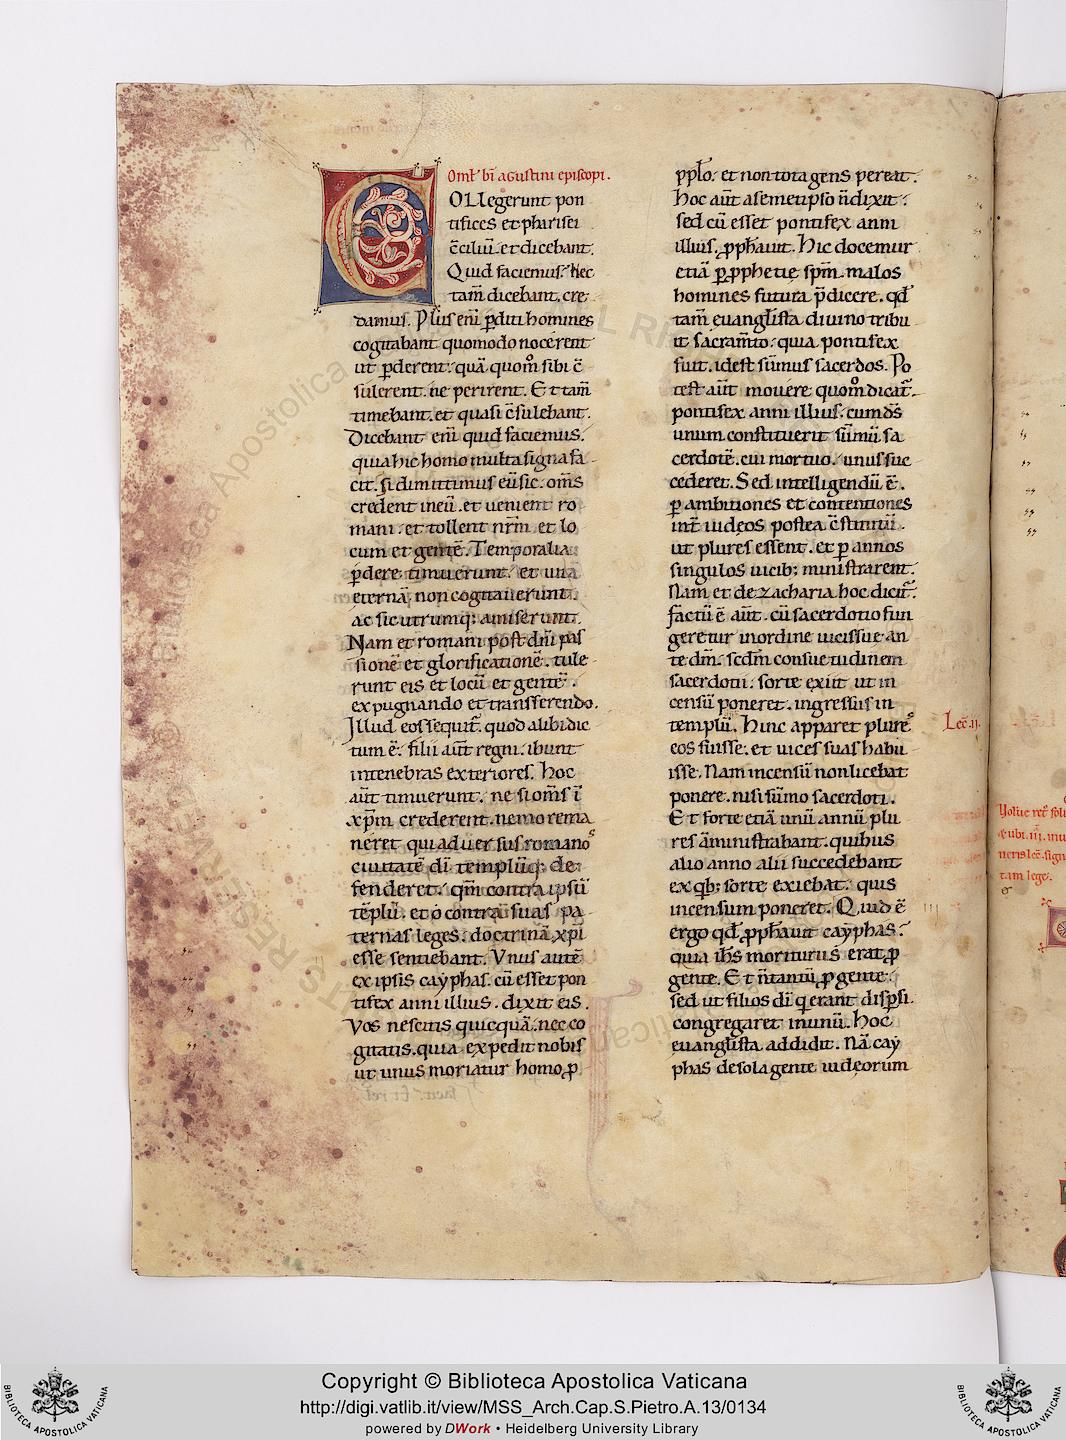 Oml̄ bī agustini episcopi.
COLLegerunt pon
tifices et pharisei
c̄ciliū. et dicebant.
Quid faciemus? Nec
tam̄ dicebant. cre
damus. Plus eni ̄ p̄diti homines
cogitabant quomodo nocerent
ut p̄derent. quā quom̊ sibi c̄
sulerent. ne perirent. Et tam̄
timebant. et quasi c̄sulebant.
Dicebant eni ̄ quid faciemus.
quia hic homo multa signa fa
cit. si dimittimus eū sic. om̄s
credent ineū. et uenient ro
mani. et tollent nr̄m et lo
cum et gentē. Temporalia
p̄dere timuerunt. et uitā
eternā non cogitauerunt.
ac sic utrumq; amiserunt.
Nam et romani post dn̄i pas
sionē et glorificationē. tule
runt eis et locū et gentē.
expugnando et transferendo.
Illud eos sequit̄. quod alibi dic
tum ē. filii aūt regni. ibunt
intenebras exteriores. Hoc
aūt timuerunt. ne si om̄s ī
xp̄m crederent. nemo rema
neret qui aduersus romanos
ciuitatē dī templūq; de
fenderet. qm̄ contra ipsū
tēplū. et o contra suas pa
ternas leges. doctrinā xp̄i
esse sentiebant. Vnus autē
ex ipsis cayphas. cū esset pon
tifex anni illius. dixit eis.
Vos nescitis quicquā. nec co
gitatis. quia expedit nobis
ut unus moriatur homo p̱
pp̄lo. et non tota gens pereat.
Hoc aūt asemetipso n̄ dixit.
sed cū esset pontifex anni
illius. p̱ph̄auit. Hic docemur
etiā p̱ p̱phetie sp̄m. malos
homines futura p̄dicere. qd̄
tam̄ euanglista diuino tribu
it sacram̄to. quia pontifex
fuit. idest sūmus sacerdos. Po
test aūt mouere quom̊ dicat̄.
pontifex anni illius. cum d̄s
unum constituerit sūmū sa
cerdotē. cui mortuo. unus suc
cederet. Sed intelligendū ē.
p̱ ambitiones et contentiones
int̄ iudeos postea c̄stitutū.
ut plures essent. et p̱ annos
singulos uicib; ministrarent.
Nam et de zacharia hoc dicit̄.
factū ē aūt. cū sacerdotio fun
geretur inordine uicis sue an
te dm̄. scd̄m consuetudinem
sacerdotii. sorte exiit ut in
censū poneret. ingressus in
templū. Hinc apparet plures
eos fuisse. et uices suas habu
isse. Nam incensū non licebat
ponere. nisi sūmo sacerdoti.
Et forte etiā unū annū plu
res āministrabant. quibus
alio anno alii succedebant
ex qb; sorte exiebat. quis
incensum poneret. Quid ē
ergo qd̄ p̱ph̄auit cayphas?
quia ih̄s moriturus erat p̱
gente. Et n̄ tantū p̱ gente.
sed ut filios dī q̄ erant disp̱si.
congregaret inunū. Hoc
euanglista addidit. Nā cay
phas de sola gente iudeorum
Lec̄. ii.
Copyright © Biblioteca Apostolica Vaticana
http://digi.vatlib.it/view/MSS_Arch.Cap.S.Pietro.A.13/0134
powered by DWork • Heidelberg University Library
BIBLIOTECA APOSTOLICA VATICANA
BIBLIOTECA APOSTOLICA VATICANA